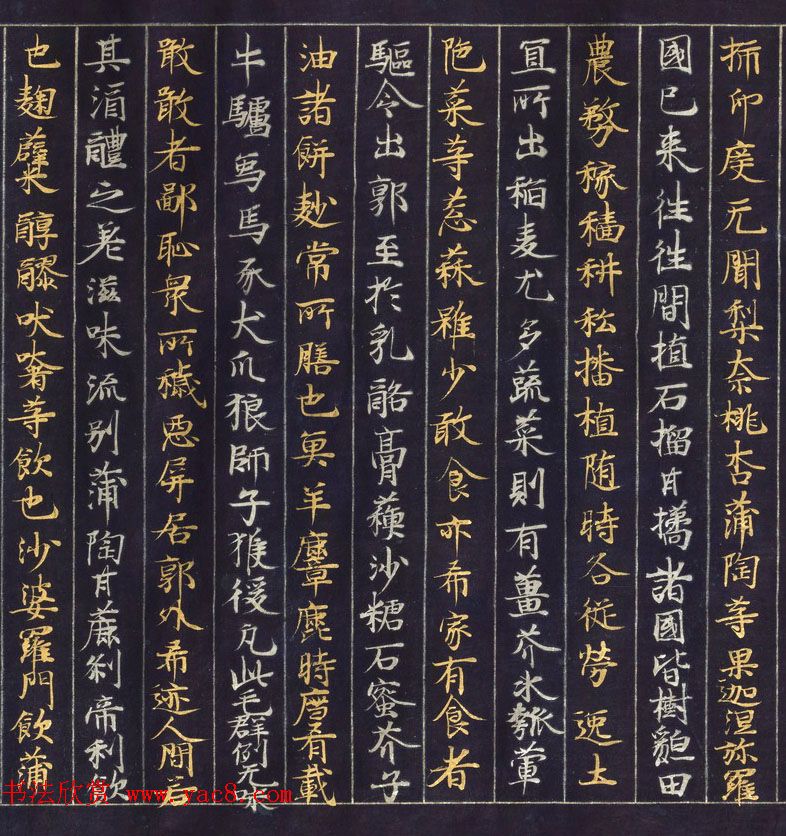 柹印度无聞梨奈桃杏蒲陶等果迦湿弥羅
國已来往往間植石榴甘橘諸國皆樹墾田
農務稼穡耕耘播植随時各従勞逸土
冝所出稲麦尤多蔬菜則有薑芥水瓠葷
陁菜等葱蒜雖少敢食亦希家有食者
驅令出郭至於乳酪膏蘓沙糖石蜜芥子
油諸餅麨常所膳也魚羊麞鹿時薦肴載
牛驢象馬豕犬狐狼師子猴猨凡此毛群例无味
敢敢者鄙恥衆所穢惡屏居郭外希迹人間若
其酒醴之差滋味流别蒲陶甘蔗刹帝利飲
也麹糵醇醪吠奢等飲也沙婆羅門飲蒲
书法欣赏 www.yac8.com